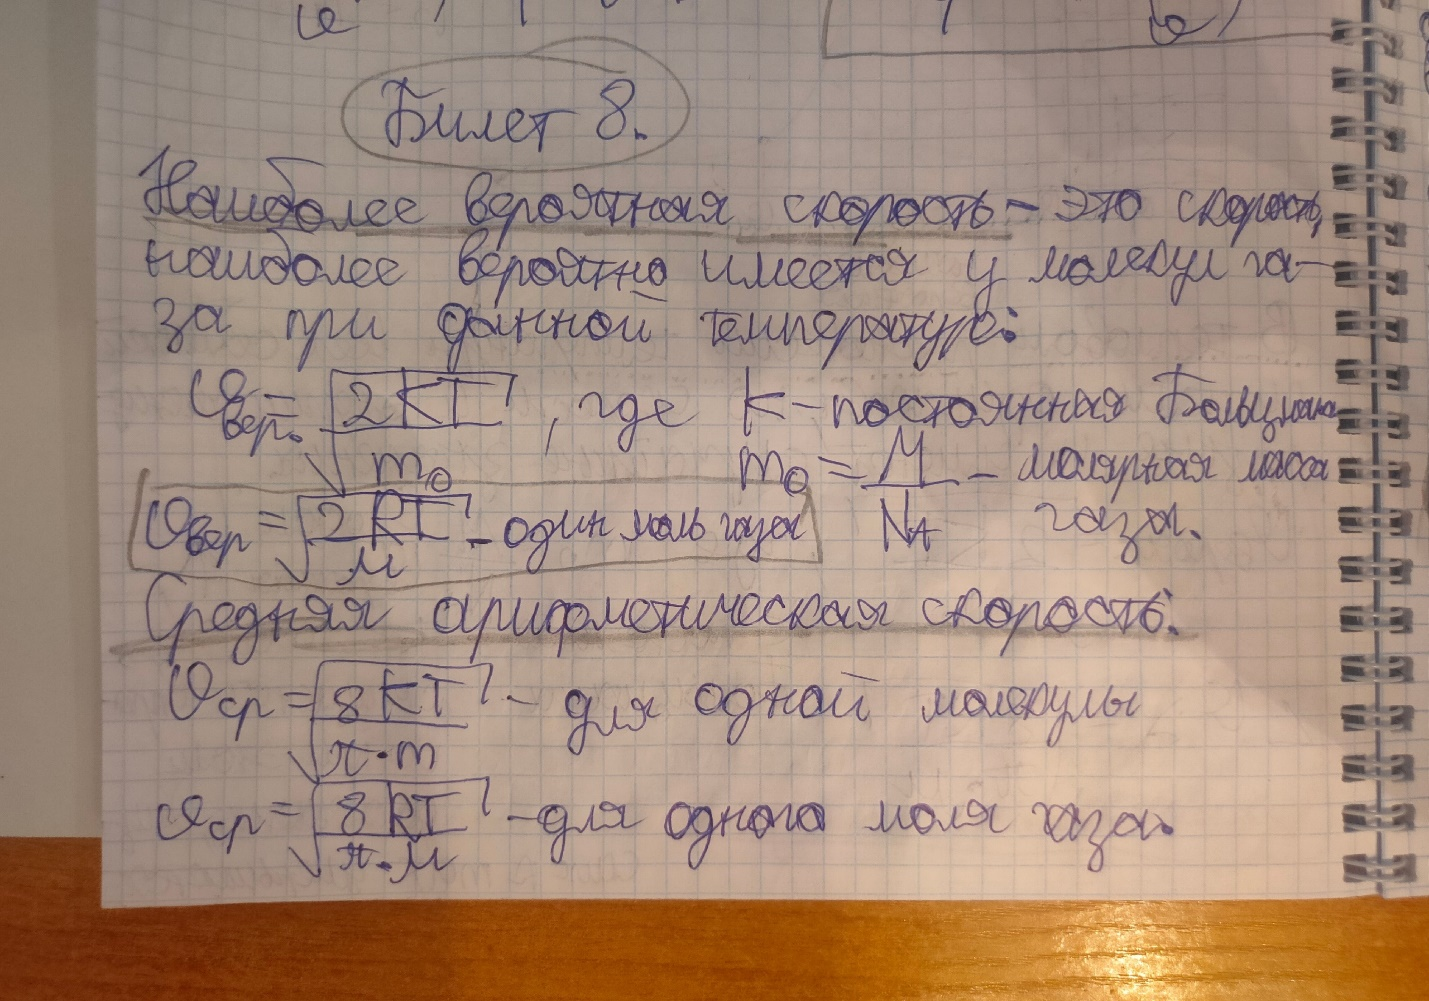 Билет 8.
Наиболее вероятная скорость – это скорость,
наиболее вероятно имеется у молекул га-
за при данной температуре:
υвер. = √(2KT/m₀), где K – постоянная Больцмана
m₀ = M/N_A – молярная масса газа.
υвер = √(2RT/M) – один моль газа
Средняя арифметическая скорость:
υср = √(8KT/π·m) – для одной молекулы
υср = √(8RT/π·M) – для одного моля газа.